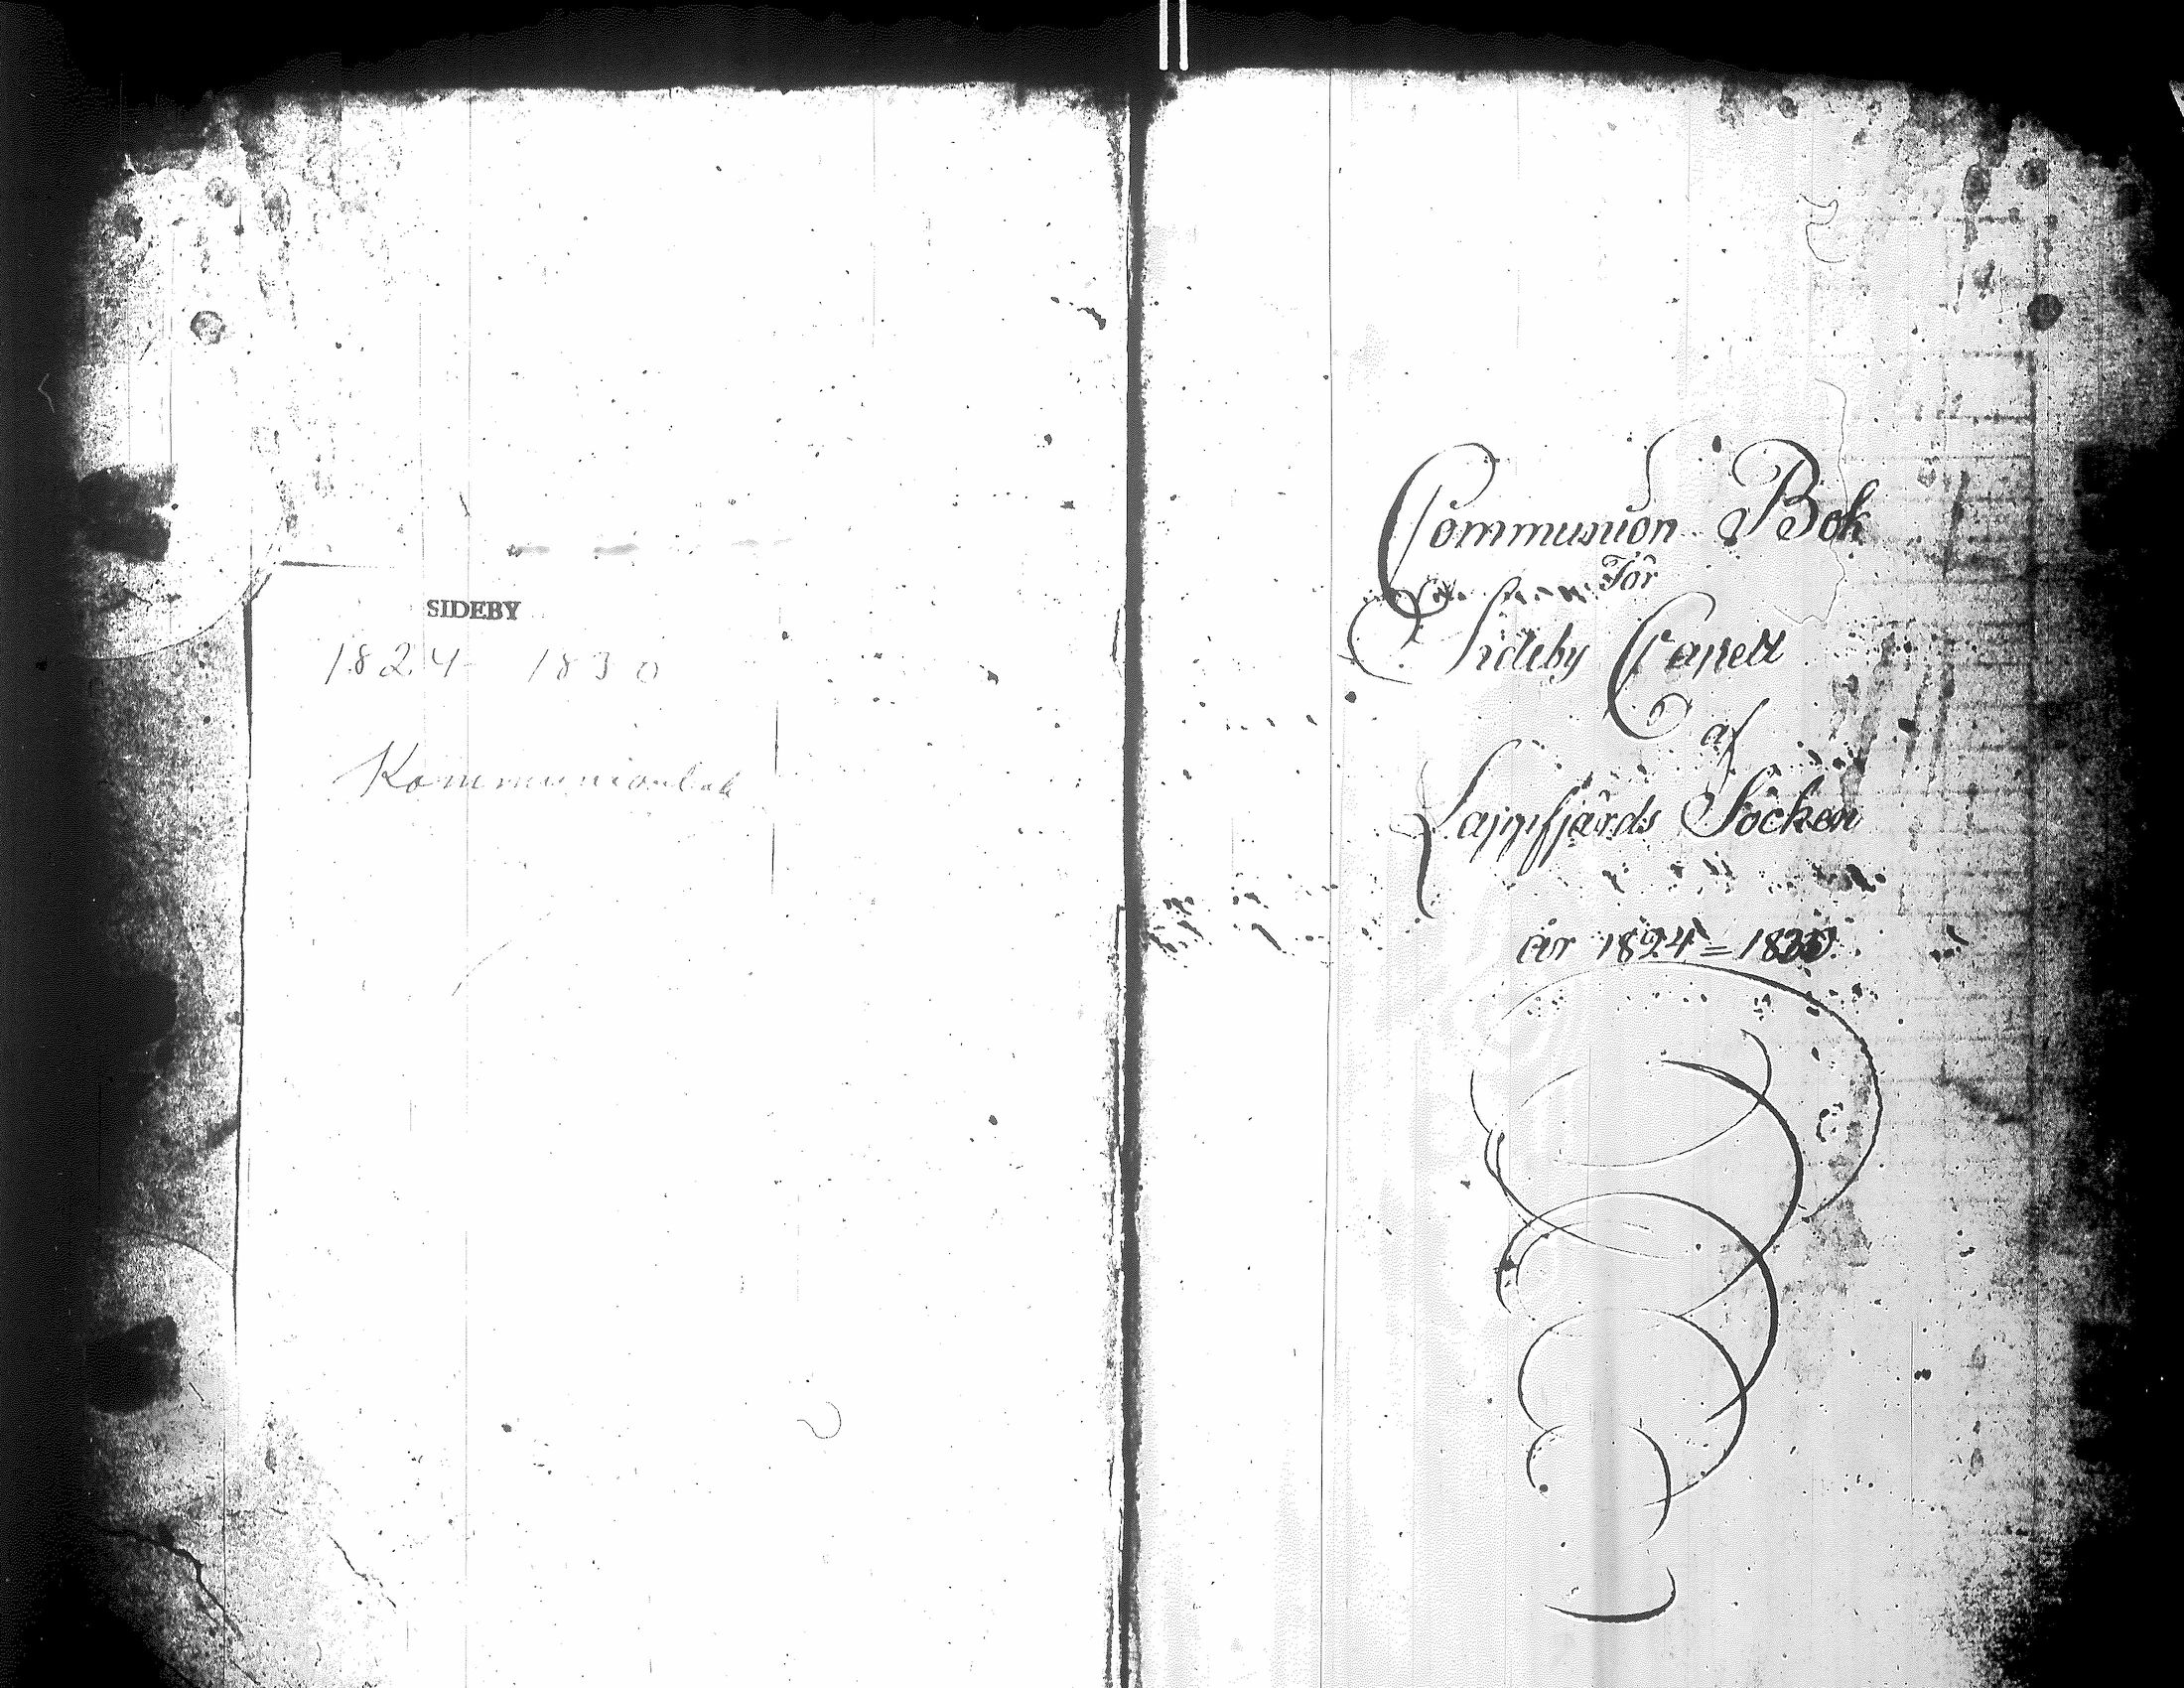 SIDEBY
1824- 1830
Kommunionbok
Communion Bok
För
Sideby Capell
af
Lappfjärds Socken
år 1824 = 1830.